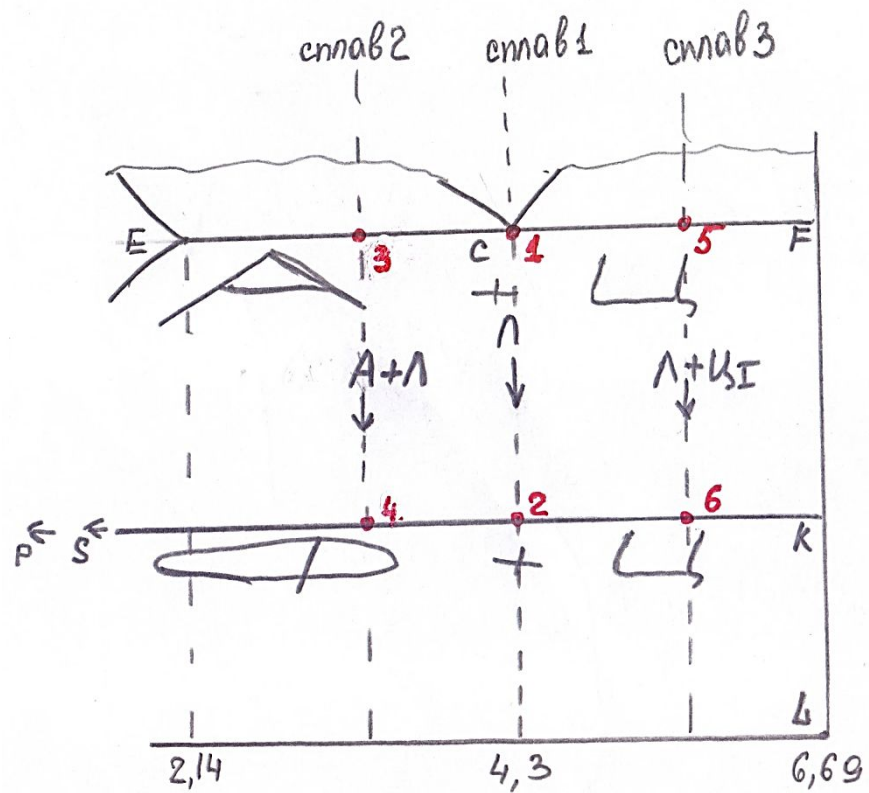 сплав2 сплав1 сплав3
E 3 C 1 5 F
Л
А+Л Л+ЦI
4. 2 6
P S K
L
2,14 4,3 6,69